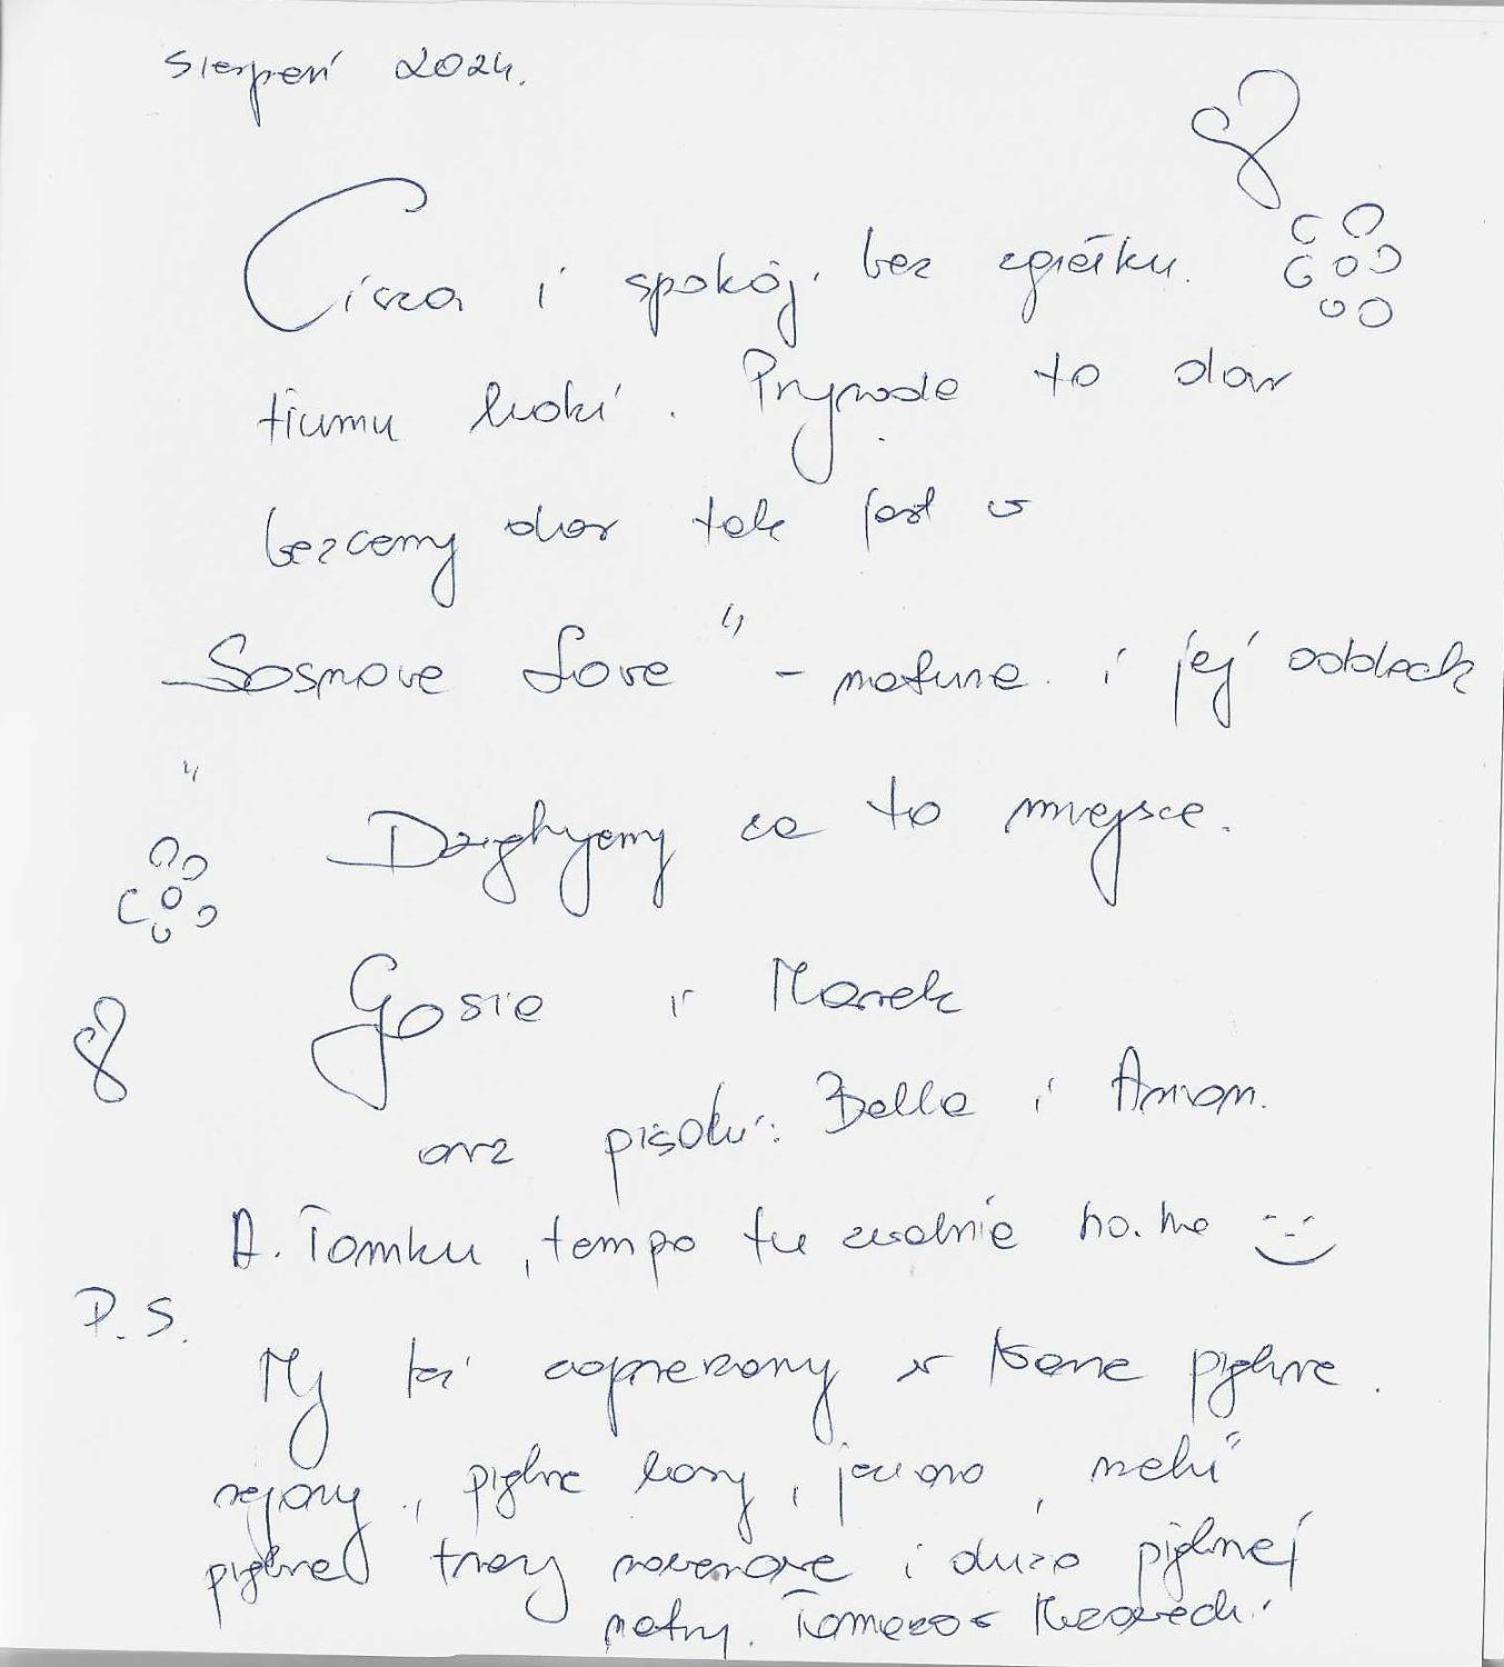 Sierpień 2024.
Cisza i spokój. bez zgiełku.
tłumu ludzi. Przyroda to dar
bezcenny dar tak jest w
Sosnowe Love" - natura i jej oddech
" Dziękujemy za to miejsce.
Gosia i Marek
oraz pisaki: Bella i Aman.
A. Tomku, tempo tu zwalnia ha.ha
P.S.
My też w piękne.
rejony, piękne lasy, jeziora, rzeki
piękne trasy rowerowe i dużo pięknej
natury. Tomasz